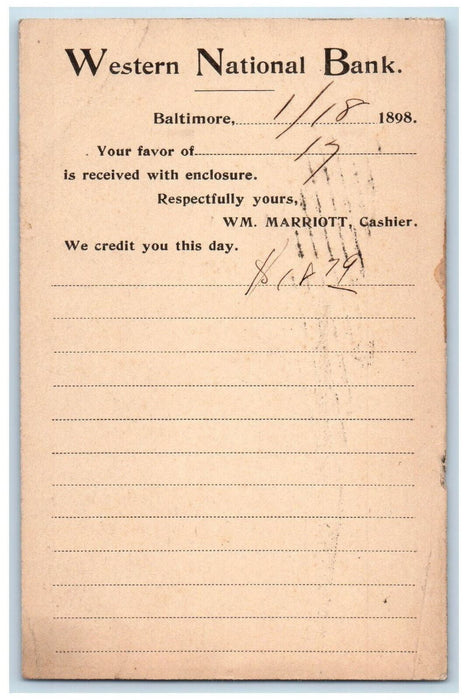 Western National Bank.
Baltimore, 1/18 1898.
Your favor of 17
is received with enclosure.
Respectfully yours,
WM. MARRIOTT, Cashier.
We credit you this day.
$18 79